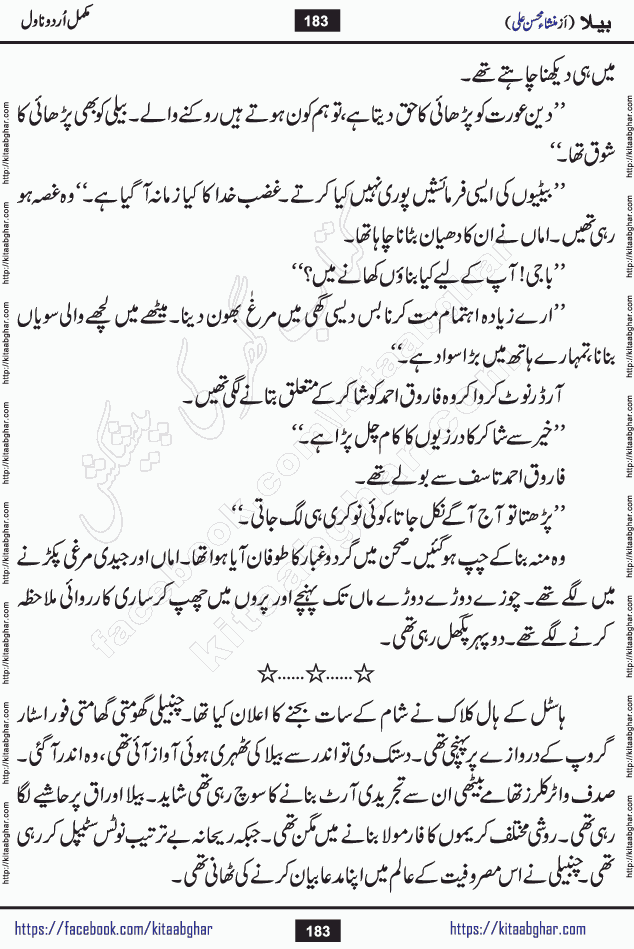 بیلا (از منشاء محسن علی)
183
مکمل اُردو ناول
میں ہی دیکھنا چاہتے تھے۔
’’دین عورت کو پڑھائی کا حق دیتا ہے، تو ہم کون ہوتے ہیں روکنے والے۔ بیلی کو بھی پڑھائی کا
شوق تھا۔‘‘
’’بیٹیوں کی ایسی فرمائشیں پوری نہیں کیا کرتے۔ غضب خدا کا کیا زمانہ آ گیا ہے۔‘‘ وہ غصہ ہو
رہی تھیں۔ اماں نے ان کا دھیان ہٹانا چاہا تھا۔
’’باجی! آپ کے لیے کیا بناؤں کھانے میں؟‘‘
’’ارے زیادہ اہتمام مت کرنا بس دیسی گھی میں مرغ بھون دینا۔ میٹھے میں لچھے والی سویاں
بنانا، تمہارے ہاتھ میں بڑا سواد ہے۔‘‘
آرڈر نوٹ کروا کر وہ فاروق احمد کو شاکر کے متعلق بتانے لگی تھیں۔
’’خیر سے شاکر کا درزیوں کا کام چل پڑا ہے۔‘‘
فاروق احمد تاسف سے بولے تھے۔
’’پڑھتا تو آج آگے نکل جاتا، کوئی نوکری ہی لگ جاتی۔‘‘
وہ منہ بنا کے چپ ہو گئیں۔ صحن میں گرد و غبار کا طوفان آیا ہوا تھا۔ اماں اور جیدی مرغی پکڑنے
میں لگے تھے۔ چوزے دوڑے دوڑے ماں تک پہنچے اور پروں میں چھپ کر ساری کارروائی ملاحظہ
کرنے لگے تھے۔ دوپہر پگھل رہی تھی۔
☆......☆......☆
ہاسٹل کے ہال کلاک نے شام کے سات بجنے کا اعلان کیا تھا۔ چنبیلی گھومتی گھامتی فور اسٹار
گروپ کے دروازے پر پہنچی تھی۔ دستک دی تو اندر سے بیلا کی ٹھہری ہوئی آواز آئی تھی، وہ اندر آ گئی۔
صدف واٹر کلرز تھامے بیٹھی ان سے تجریدی آرٹ بنانے کا سوچ رہی تھی شاید۔ بیلا اوراق پر حاشیے لگا
رہی تھی۔ روشی مختلف کریموں کا فارمولا بنانے میں مگن تھی۔ جبکہ ریحانہ بے ترتیب نوٹس سٹیپل کر رہی
تھی۔ چنبیلی نے اس مصروفیت کے عالم میں اپنا مدعا بیان کرنے کی ٹھانی تھی۔
http://kitaabghar.com http://kitaabghar.com http://kitaabghar.com http://kitaabghar.com http://kitaabghar.com http://kitaabghar.com http://kitaabghar.com http://kitaabghar.com
http://kitaabghar.com http://kitaabghar.com http://kitaabghar.com http://kitaabghar.com http://kitaabghar.com http://kitaabghar.com http://kitaabghar.com http://kitaabghar.com
کتاب گھر کی پیشکش
kitaabghar.com
facebook.com/kitaabghar
https://facebook.com/kitaabghar
183
https://kitaabghar.com